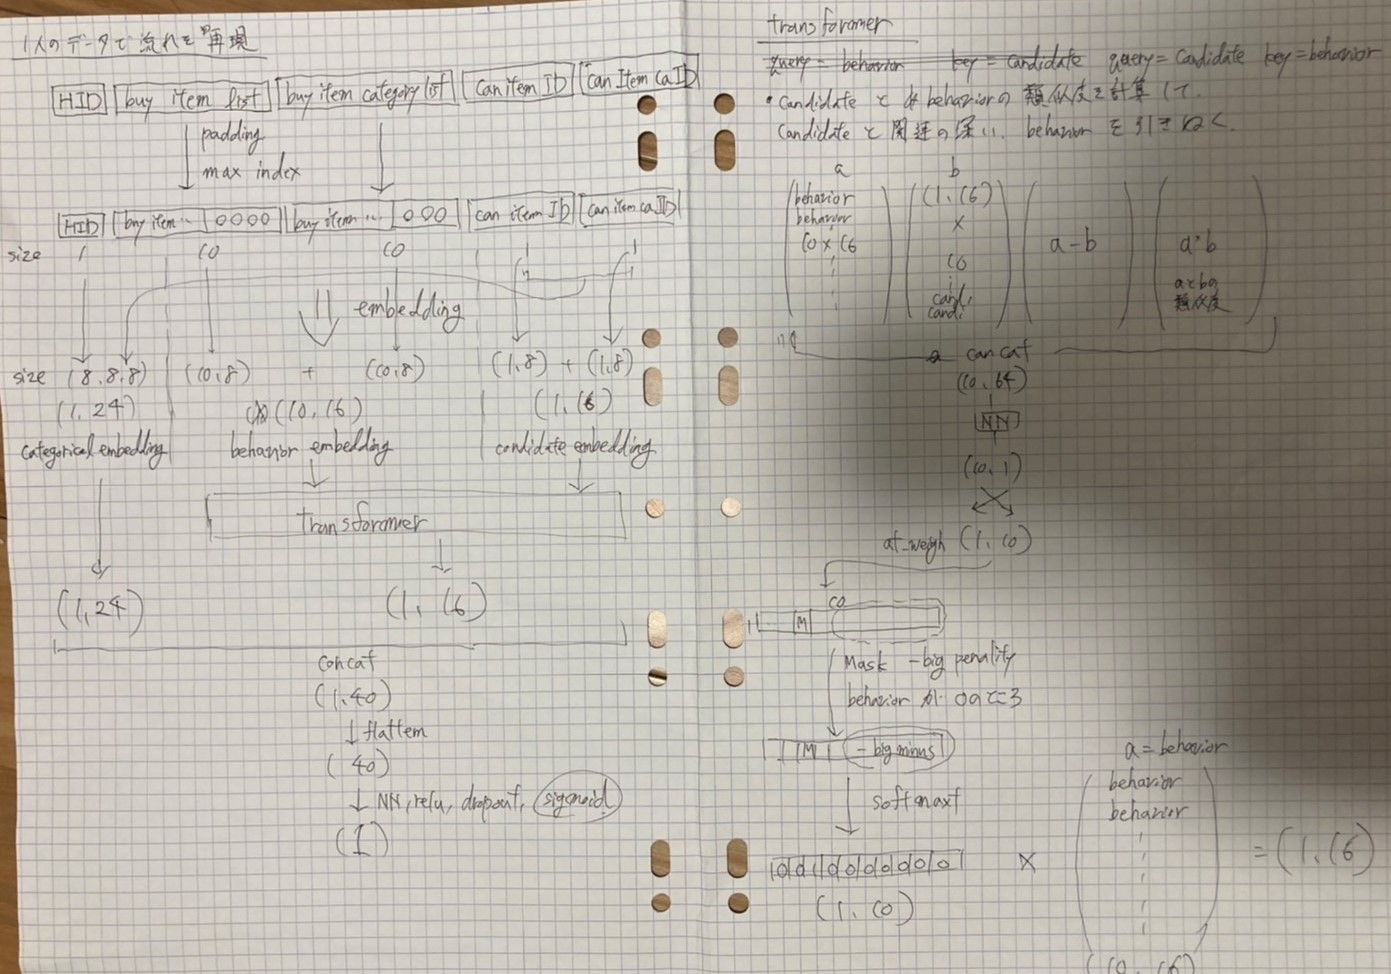 1人のデータで流れを再現
HID buy item list buy item category list Can item ID Can Item Ca ID
padding
max index
HID buy item.. 0000 buy item... 000 can item ID can item ca ID
size 1 10 10 1 1
embedding
size (8,8,8) (10,8) + (10,8) (1,8) + (1,8)
(1,24) (10,16) (1,16)
categorical embedding behavior embedding candidate embedding
transforomer
(1,24) (1,16)
concat
(1,40)
↓ flattem
(40)
↓ NN, relu, dropout, sigmoid
(1)
transforomer
query = behavior key = candidate query = candidate key = behavior
・candidate と behaviorの類似度を計算して、
candidate と関連の深い、behavior を引きぬく。
a b
behavior (1,16)
behavior ×
10×16 10
candi
candi
a-b
a*b
類似度
concat
(10,64)
NN
(10,1)
at_weigh (1,10)
10
M
Mask -big penality
behavior が 0のところ
M -big minus
softmaxf
(1,10)
×
a = behavior
behavior
behavior
(10,16)
= (1,16)